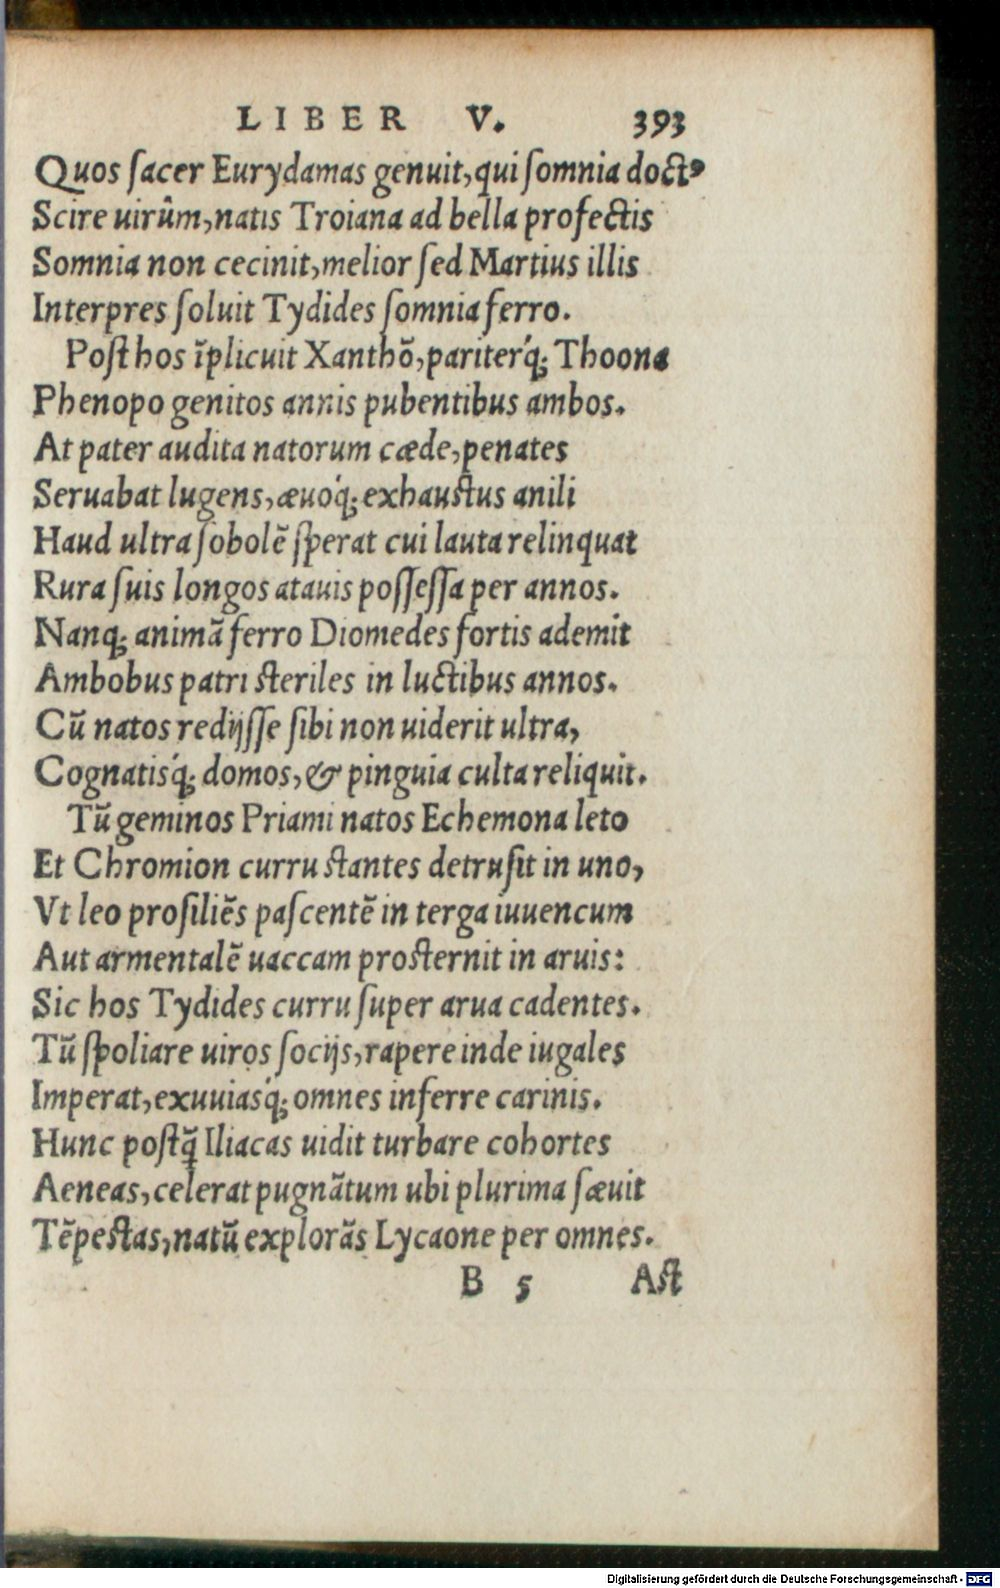 LIBER V. 393
Quos ſacer Eurydamas genuit, qui ſomnia doctꝰ
Scire uirûm, natis Troiana ad bella profectis
Somnia non cecinit, melior ſed Martius illis
Interpres ſoluit Tydides ſomnia ferro.
Poſt hos ĩplicuit Xanthõ, pariterq́; Thoona
Phenopo genitos annis pubentibus ambos.
At pater audita natorum cæde, penates
Seruabat lugens, æuoq́; exhauſtus anili
Haud ultra ſobolẽ ſperat cui lauta relinquat
Rura ſuis longos atauis poſſeſſa per annos.
Nanq; animã ferro Diomedes fortis ademit
Ambobus patri ſteriles in luctibus annos.
Cũ natos redijſſe ſibi non uiderit ultra,
Cognatisq́; domos, & pinguia culta reliquit.
Tũ geminos Priami natos Echemona leto
Et Chromion curru ſtantes detruſit in uno,
Vt leo proſiliẽs paſcentẽ in terga iuuencum
Aut armentalẽ uaccam proſternit in aruis:
Sic hos Tydides curru ſuper arua cadentes.
Tũ ſpoliare uiros ſocijs, rapere inde iugales
Imperat, exuuiasq́; omnes inferre carinis.
Hunc poſtq̃ Iliacas uidit turbare cohortes
Aeneas, celerat pugnãtum ubi plurima ſæuit
Tẽpeſtas, natũ explorãs Lycaone per omnes.
B 5 Aſt
Digitalisierung gefördert durch die Deutsche Forschungsgemeinschaft - DFG